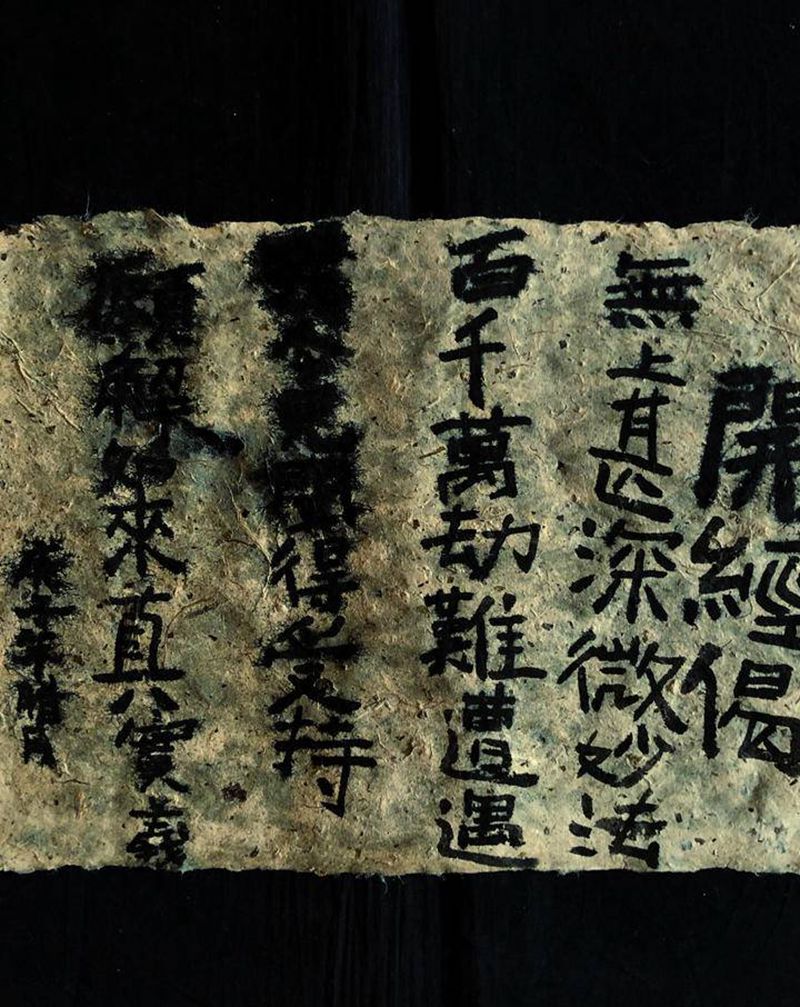 開經偈
無上甚深微妙法
百千萬劫難遭遇
今見聞得受持
願解如來真實義
年臘月